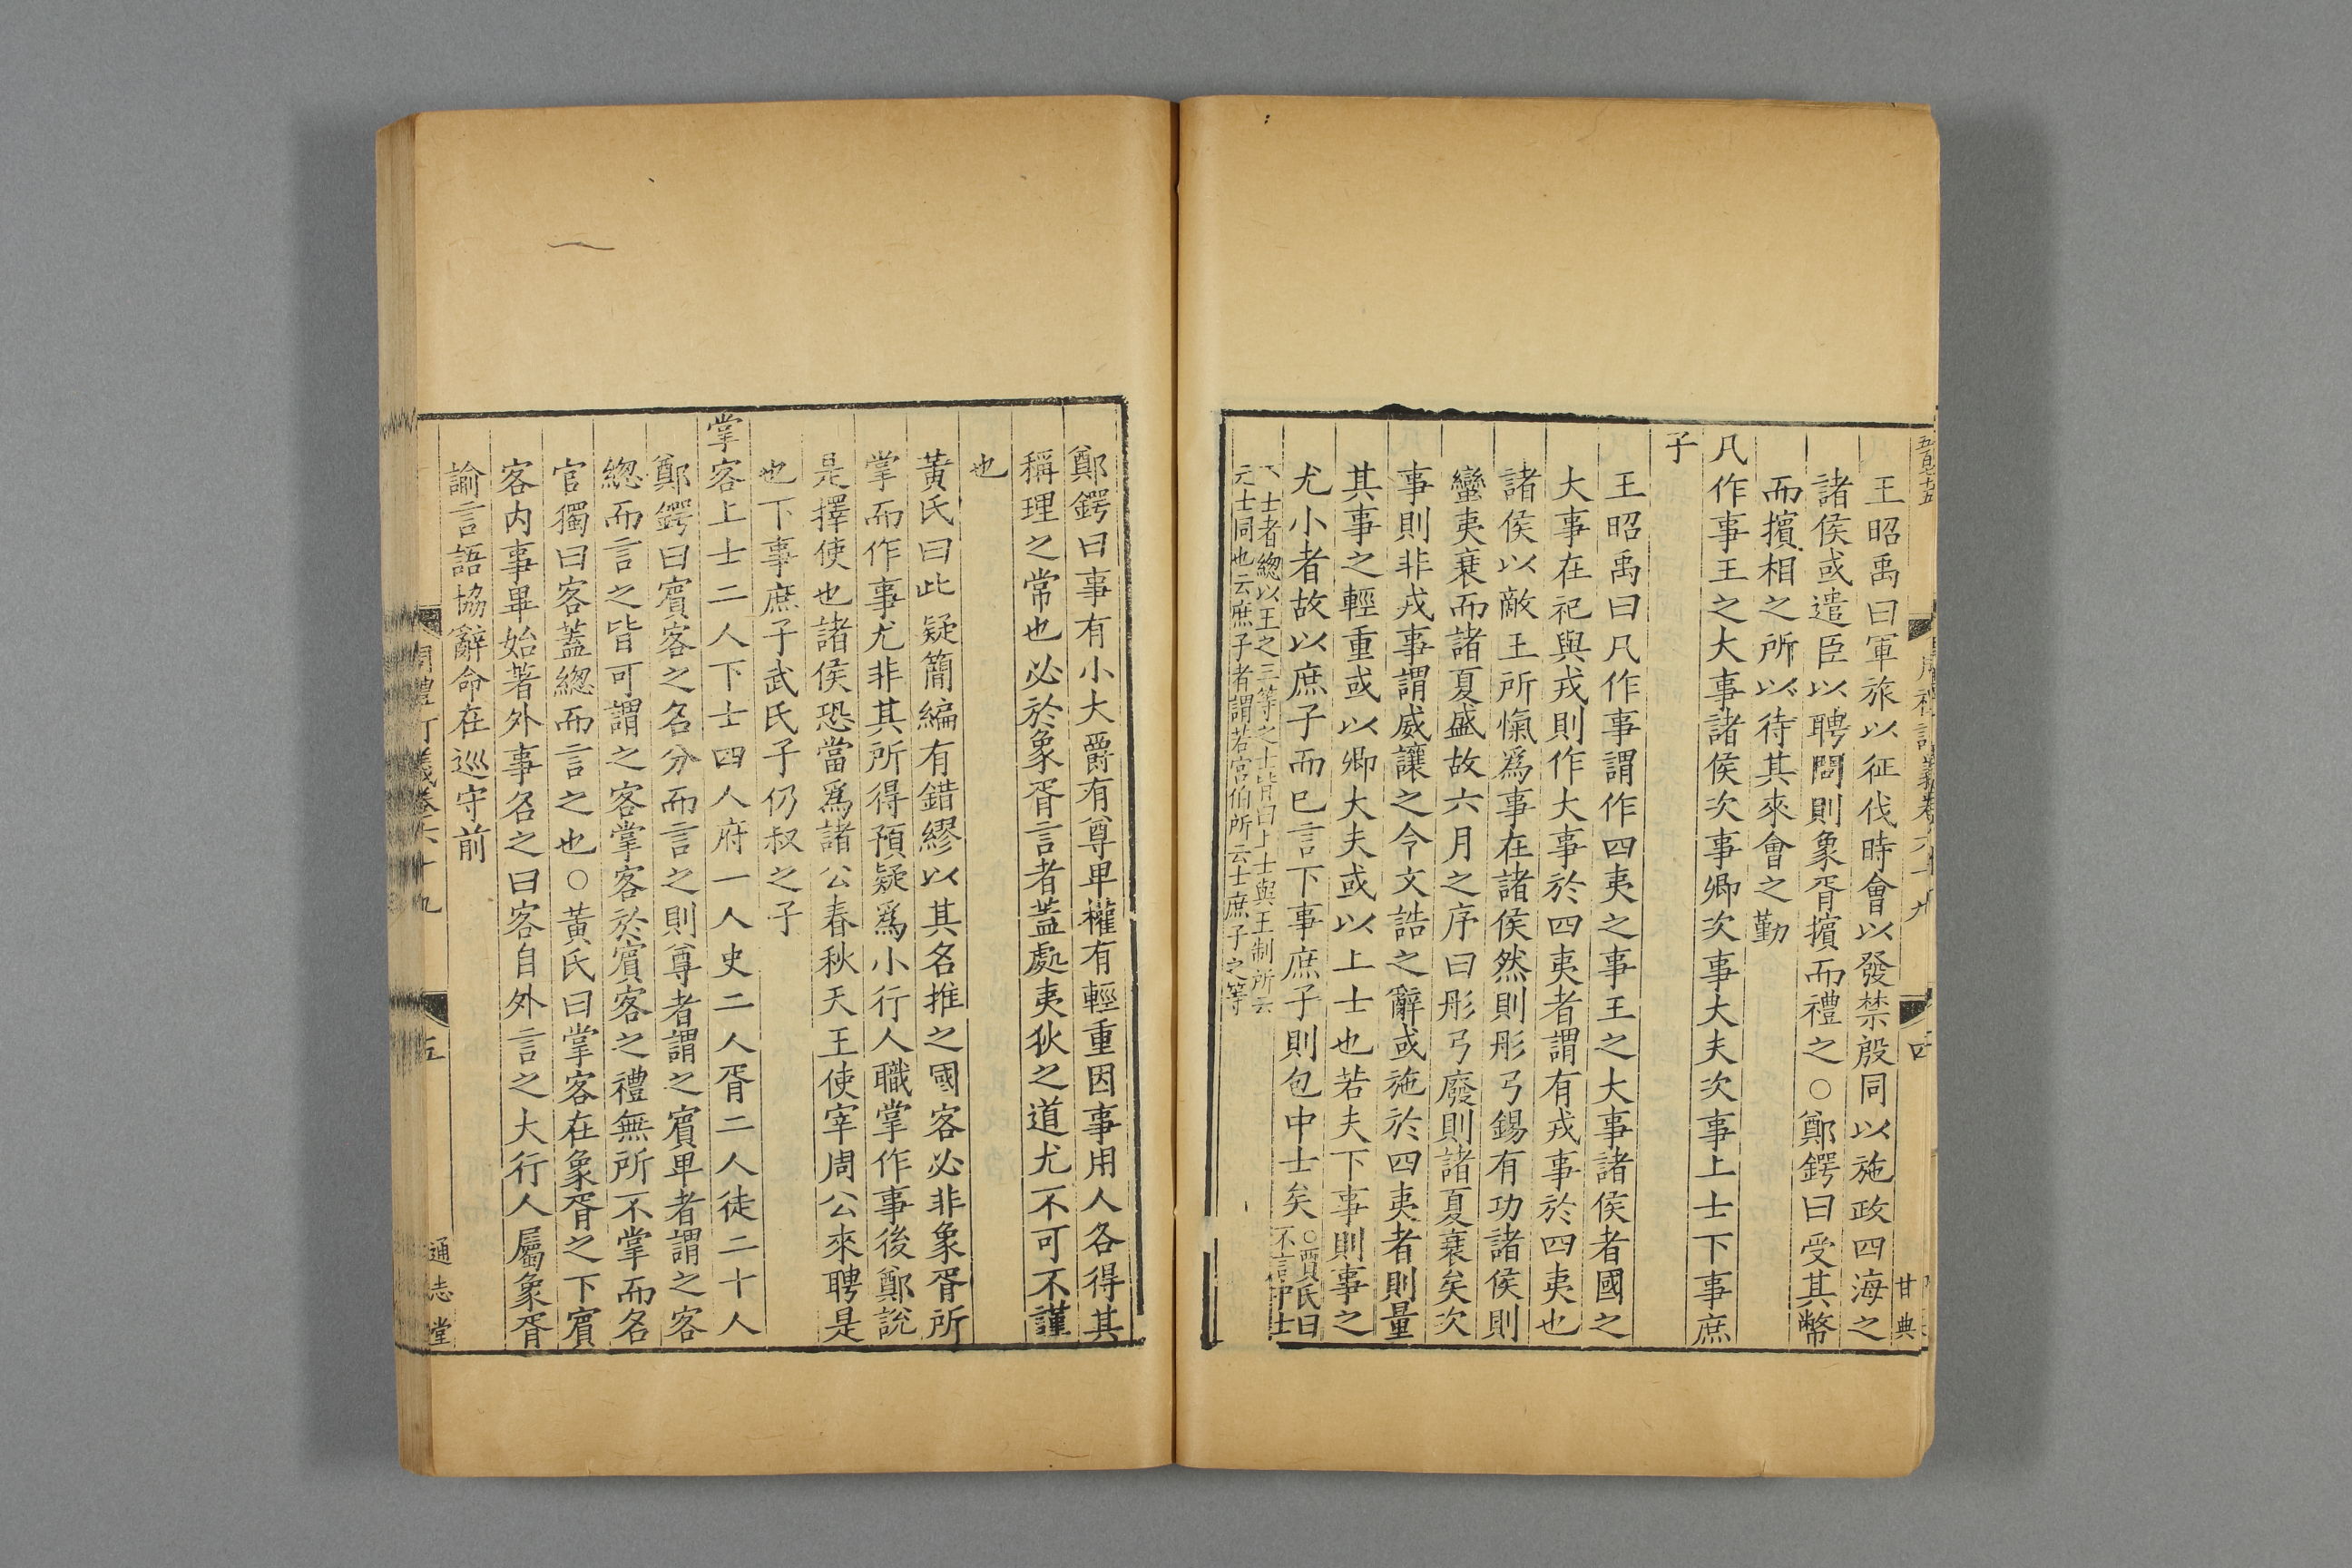 五百七十五
周禮訂義卷六十九
四
甘典
王昭禹曰軍旅以征伐時會以發禁殷同以施政四海之
諸侯或遣臣以聘問則象胥擯而禮之○鄭鍔曰受其幣
而擯相之所以待其來會之勤
凡作事王之大事諸侯次事卿次事大夫次事上士下事庶
子
王昭禹曰凡作事謂作四夷之事王之大事諸侯者國之
大事在祀與戎則作大事於四夷者謂有戎事於四夷也
諸侯以敵王所愾爲事在諸侯然則彤弓錫有功諸侯則
蠻夷衰而諸夏盛故六月之序曰彤弓廢則諸夏衰矣次
事則非戎事謂威讓之令文誥之辭或施於四夷者則量
其事之輕重或以卿大夫或以上士也若夫下事則事之
尤小者故以庶子而已言下事庶子則包中士矣○賈氏曰
不言中士
下士者緫以王之三等之士皆曰上士與王制所云
元士同也云庶子者謂若宮伯所云士庶子之等
鄭鍔曰事有小大爵有尊卑權有輕重因事用人各得其
稱理之常也必於象胥言者蓋處夷狄之道尤不可不謹
也
黃氏曰此疑簡編有錯繆以其名推之國客必非象胥所
掌而作事尤非其所得預疑爲小行人職掌作事後鄭說
是擇使也諸侯恐當爲諸公春秋天王使宰周公來聘是
也下事庶子武氏子仍叔之子
掌客上士二人下士四人府一人史二人胥二人徒二十人
鄭鍔曰賓客之名分而言之則尊者謂之賓卑者謂之客
緫而言之皆可謂之客掌客於賓客之禮無所不掌而名
官獨曰客蓋緫而言之也○黃氏曰掌客在象胥之下賓
客内事畢始著外事名之曰客自外言之大行人屬象胥
諭言語協辭命在巡守前
周禮訂義卷六十九
五
通志堂